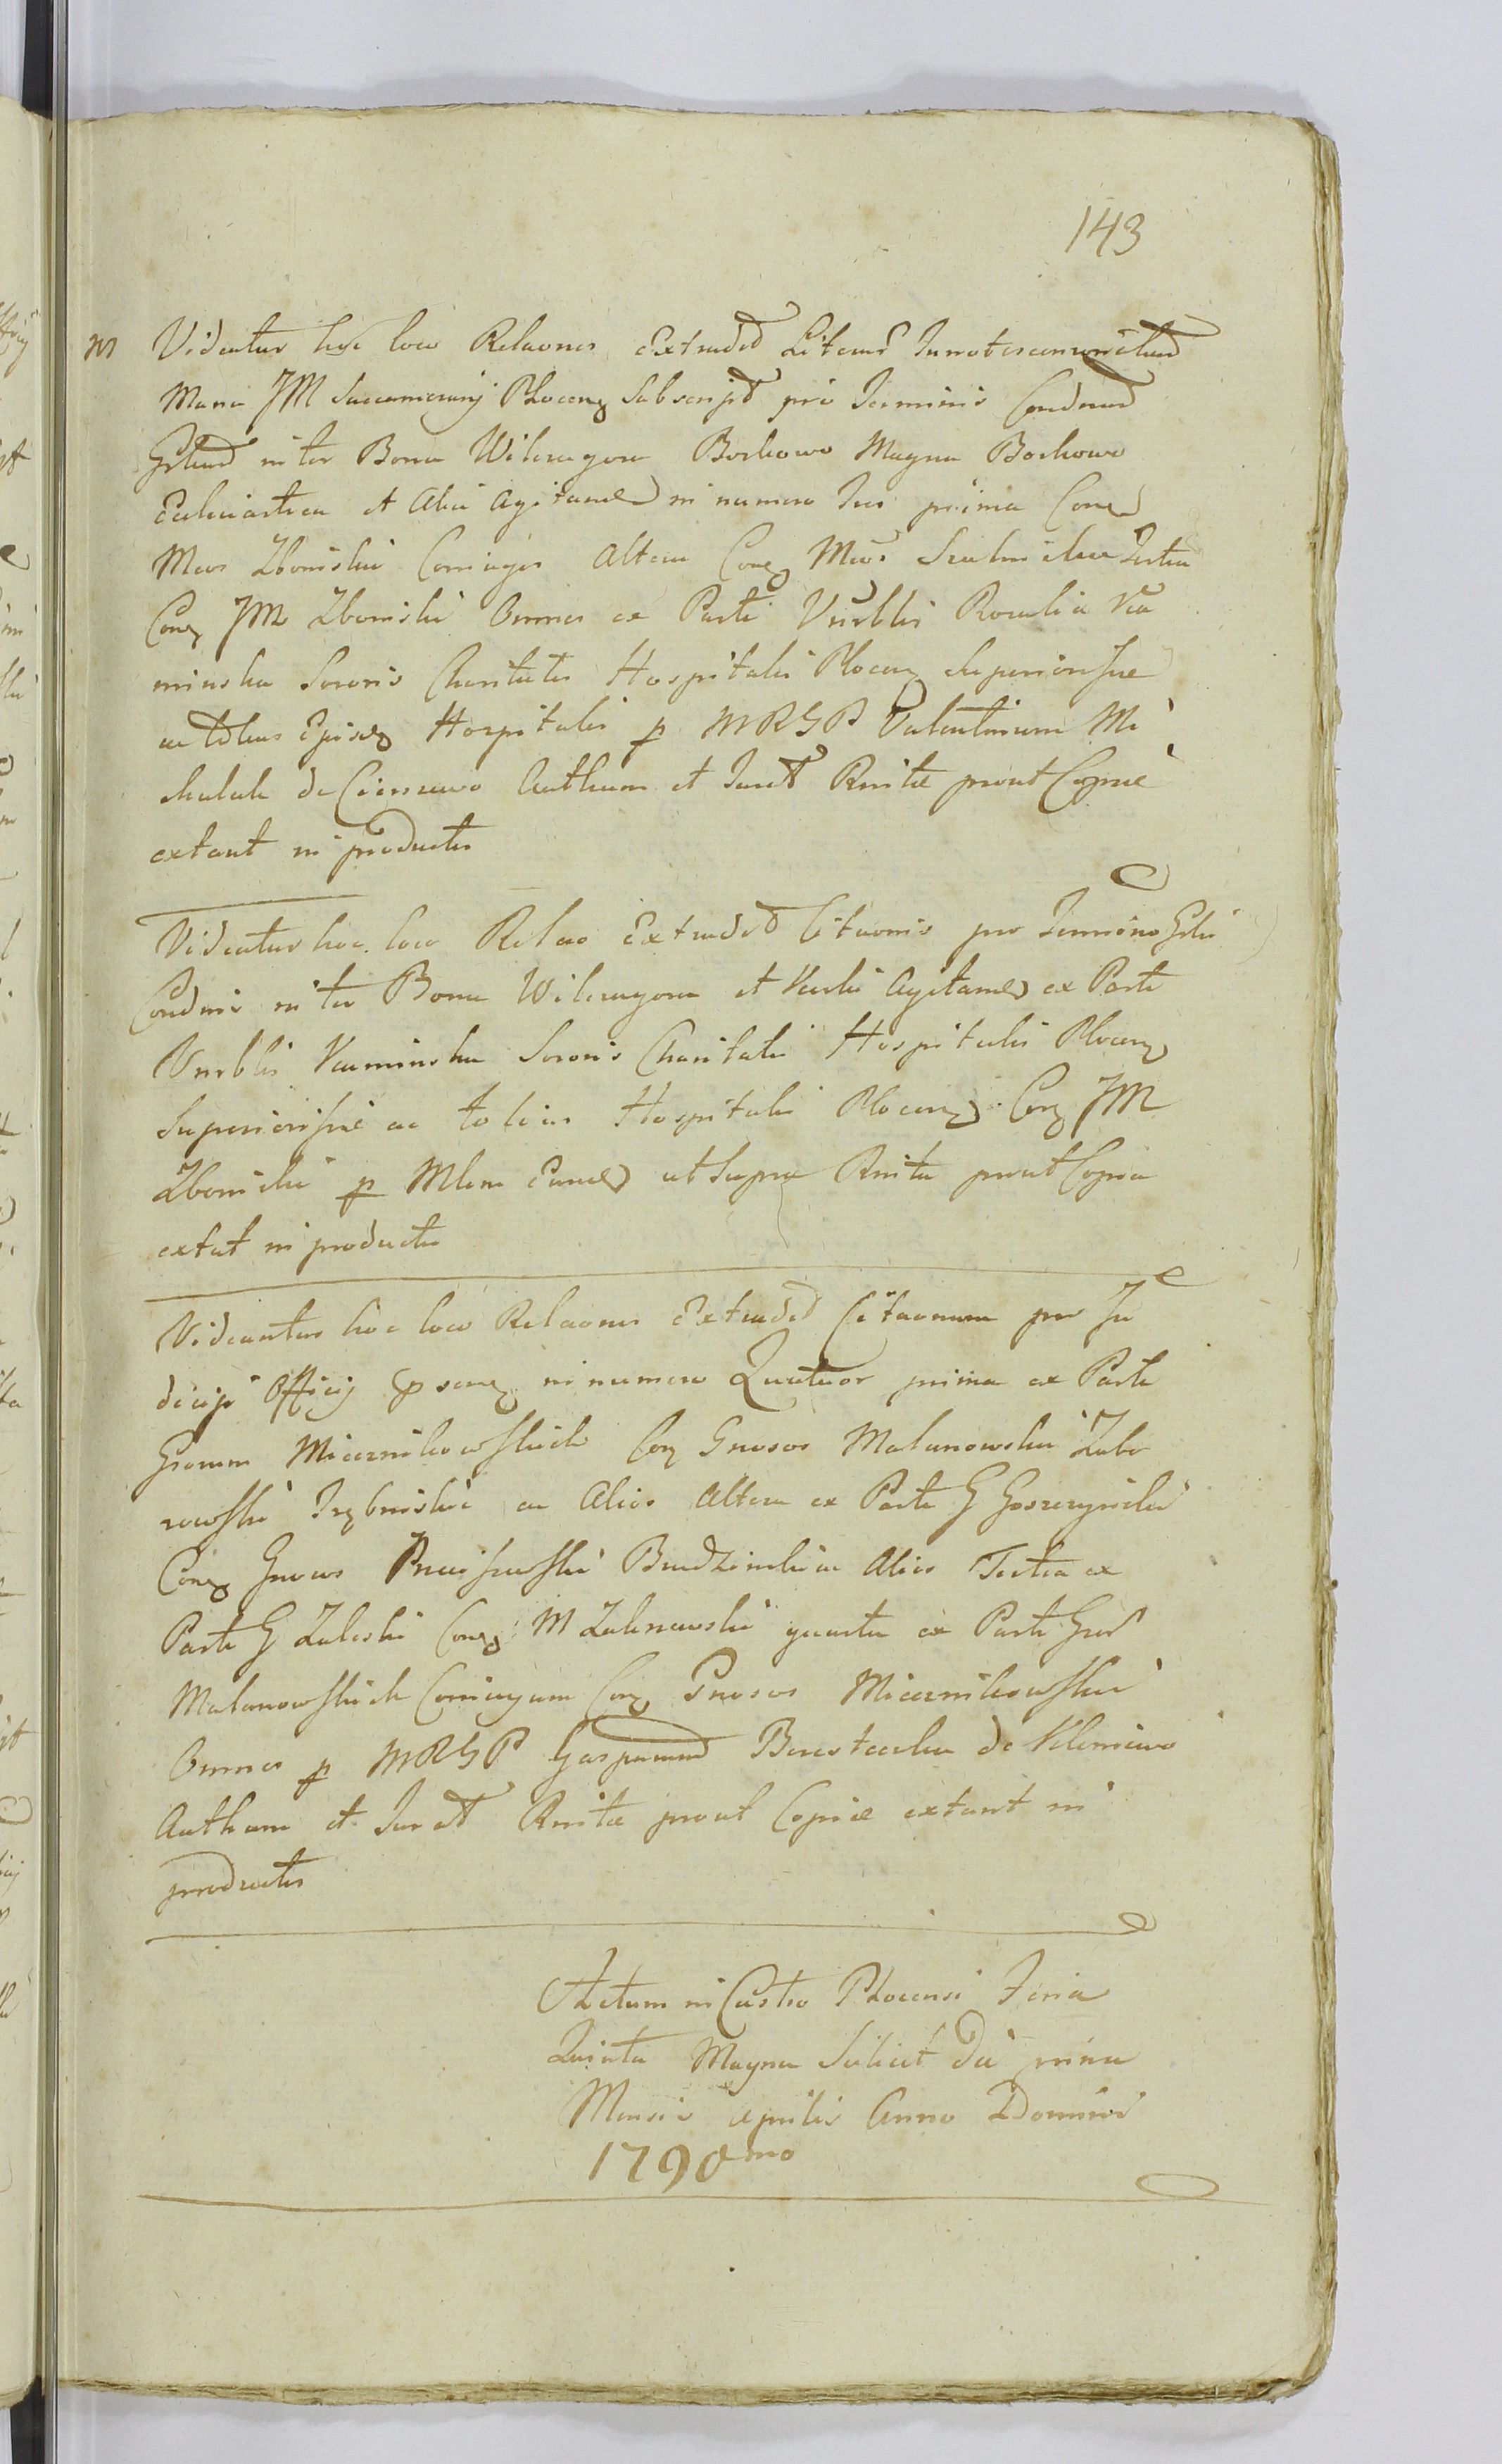 143
m Videatur hoc loco Relaones Extradd Literar Innotescenrialiud
Manu JM Succamerarij Plocens Subscript pro Terminis Condnad
Grlnad inter Bona Wilczagora Borkowo Magna Borkowo
Ecclesiastica et Alia Agitand in numero Tres prima Cona
Mcos Zboinskie Coniuges Altera Cona Mcos Tertia
Cona JM Zboinski Omnes ex Parte Vnrblis Rosalia Ka
minska Sororis Charitatis Hospitalis Plocens Superiorisse
ac totius Hospitalis p MRGP Valentinum Mi
chalak de Cierszewo Authum et Jurat Rnitae prout Copiae
extant in productis
Videatur hoc loco Relao Extradd Citaonis pro Termino Grli
Condnis inter Bona Wilczagora et Karli Agitand ex Parte
Vnrblis Kaminska Sororis Charitatis Hospitalis Plocens
Superiorisse ac totius Hospitalis Plocens Cona JM
Zboinski p Mlem Eund ut Supra Rnita prout Copia
extat in productis
Videantur hoc loco Relaones Extradd Citaonum pro Ju
dicijs Officij in numero Quatuor prima ex Parte
Grorum Miecznikowskich Con Gnosos Malanowskie Zabo
rowskie Trębinskie ac Alios Altera ex Parte G Goszczynski
Cona Gnosos Budzinskie ac Alios Tertia ex
Parte G Zaleski Cona M quarta ex Parte Gror
Malanowskich Coniugum Con Gnosos Miecznikowskie
Omnes p MRGP Gasparum de
Authum et Jurat Rnitae prout Copiae extant in
productis
Actum in Castro Plocensi Feria
Quinta Magna Scilicet Die prima
Mensis Aprilis Anno Domini
1790mo